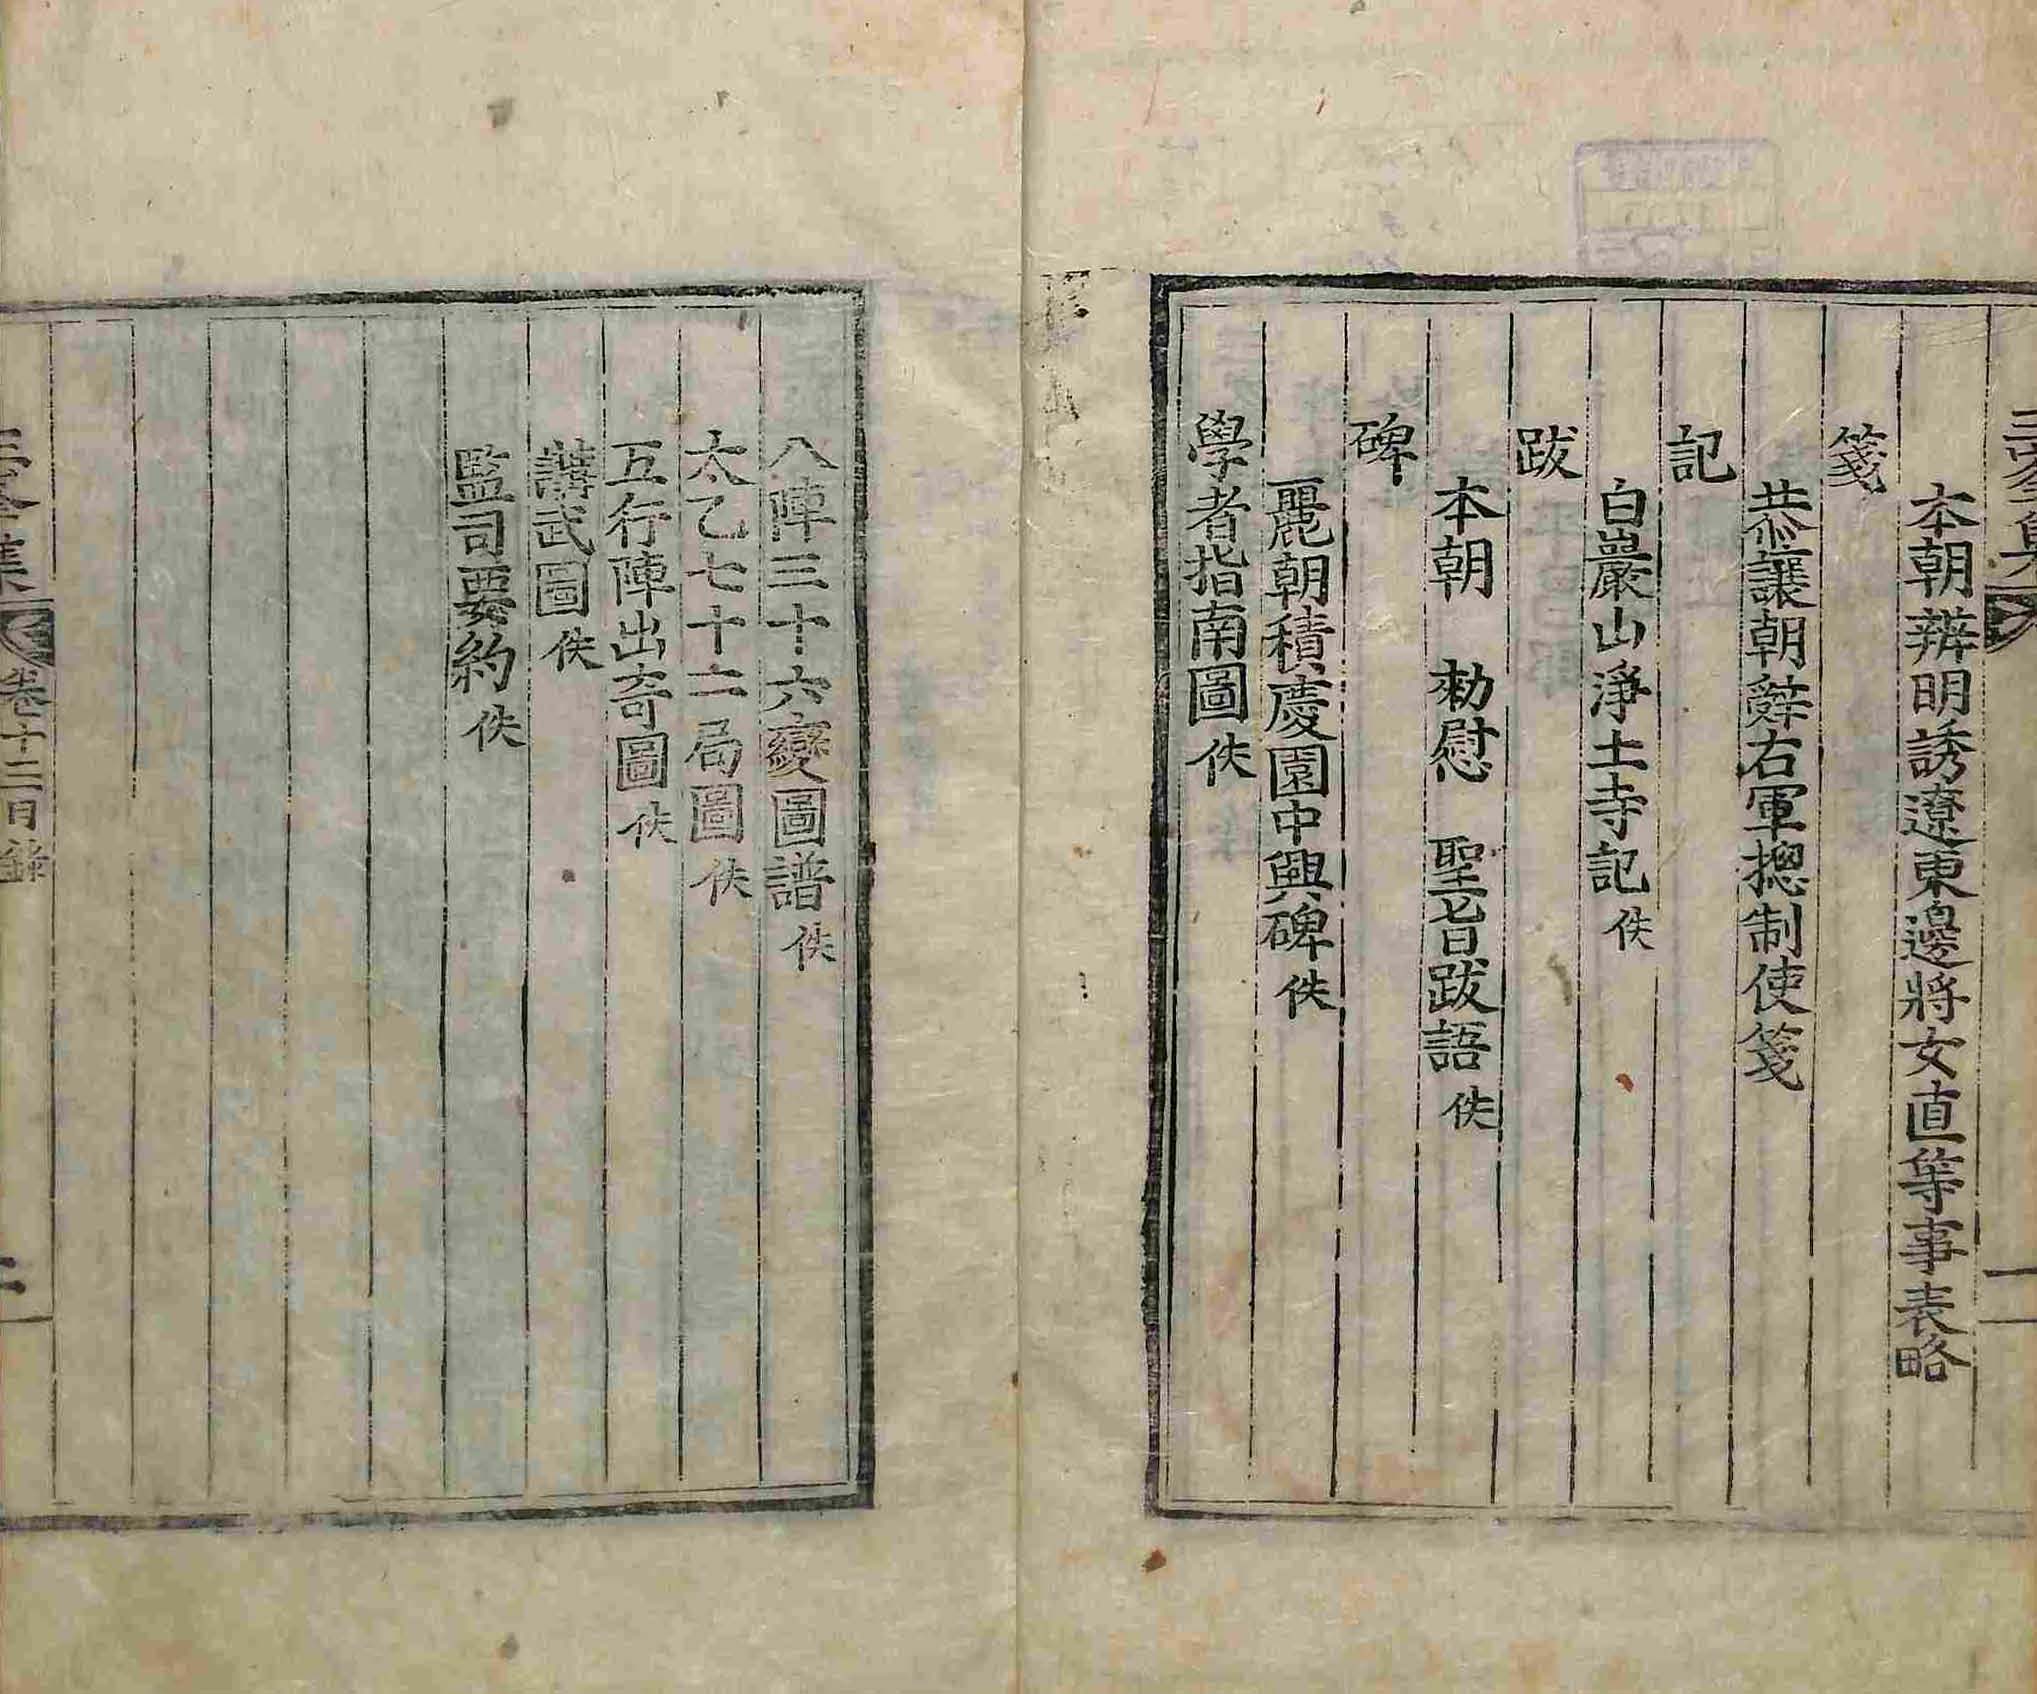 本朝辨明誘遼東邊將女直等事表略
箋
恭讓朝辭右軍摠制使箋
記
白巖山淨土寺記 佚
跋
本朝 勑慰 聖旨跋語 佚
碑
麗朝積慶園中興碑 佚
學者指南圖 佚
八陣三十六變圖譜 佚
太乙七十二局圖 佚
五行陣出奇圖 佚
講武圖 佚
監司要約 佚
三峯集 卷十二目錄 二